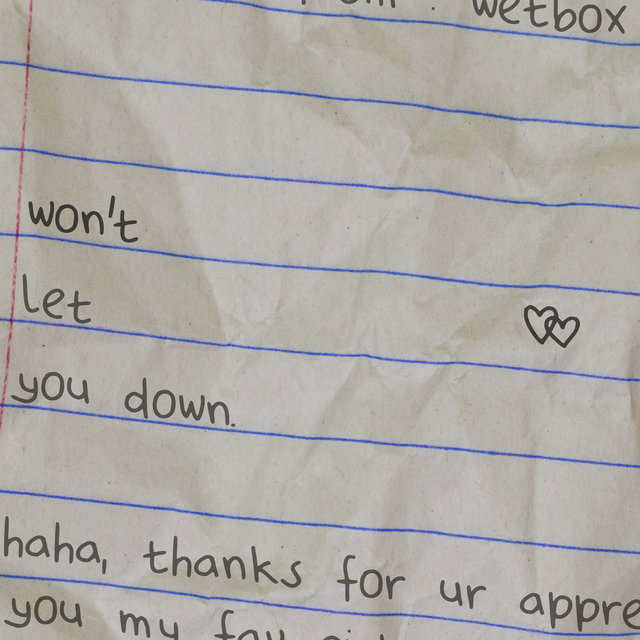 wetbox
won't
let
you down.
haha, thanks for ur appre
you my fav